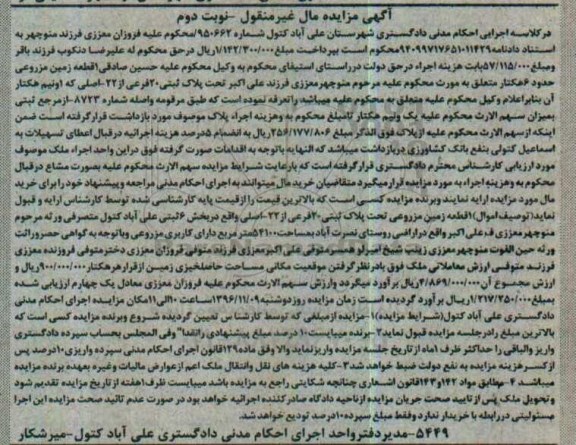 آگهی مزایده مال غیرمنقول -نوبت دوم
درکلاسه اجرایی احکام مدنی دادگستری شهرستان علی آباد کتول شماره ۹۵۰۶۶۲/محکوم علیه فروزان معززی فرزند منوچهر به
استناد دادنامه محکوم است بپرداخت مبلغ ۱/۱۴۲/۳۰۰/۰۰۰ریال درحق محکوم له علیرضا دنکوب فرزند باقر
ومبلغ ۵۷/۱۱۵/۰۰۰بابت هزینه اجراء درحق دولت درراستای استیفای محکوم به وکیل محکوم علیه حسین صادقی ۱قطعه زمین مزروعی
حدود ۶هکتار متعلق به مورث محکوم علیه مرحوم منوچهر معززی فرزند علی اکبر تحت پلاک ثبتی ۲۰فرعی از ۲۲-اصلی که ۱ونیم هکتار
آن بنابراعلام وکیل محکوم علیه متعلق به محکوم علیه میباشد راتعرفه نموده است که طبق مرقومه واصله شماره ۸۷۲۳-ازمرجع ثبتی
بمیزان سهم الارث محکوم علیه یک ونیم هکتار تامبلغ محکوم به وهزینه اجراء پلاک موصوف مورد بازداشت قرار گرفته است ضمن
اینکه ازسهم الارث محکوم علیه ازپلاک فوق الذکر مبلغ ۲۵۶/۱۷۷/۸۰۶ریال به انضمام ۵درصد هزینه اجرائیه درقبال اعطای تسهیلات به
اسماعیل کتولی بنفع بانک کشاورزی دربازداشت میباشد که النهایه باتوجه به اقدامات صورت گرفته فوق دراین واحد اجراء ملک موصوف
مورد ارزیابی کارشناس محترم دادگستری قرارگرفته است که بارعایت شرایط مزایده سهم الارث محکوم علیه بصورت مشاع درقبال
محکوم به وهزینه اجراء به مورد مزایده قرار میگیرد متقاضیان خرید مال میتوانند به اجرای احکام مدنی مراجعه وپیشنهاد خود را برای خرید
مال مورد مزایده ارایه نمایند وبرنده مزایده کسی است که بالاترین قیمت را ازقیمت پایه کارشناسی شده توسط کارشناس ارایه و قبول
نماید(توصیف اموال)۱قطعه زمین مزروعی تحت پلاک ثبتی ۲۰فرعی از ۲۲-اصلی واقع دربخش ۶ثبتی علی آباد کتول متصرفی ورثه مرحوم
منوچهر معززی ف علی اکبر واقع دراراضی روستای نصرت آباد بمساحت ۵۴۱۰۰متر مربع دارای کاربری مزروعی وباتوجه به گواهی حصروراثت
ورثه حین الفوت منوچهرمعززی زینب شیخ امیرلو همسرمتوفی علی اکبرمعززی فرزند متوفی فروزان معززی دخترمتوفی فروزنده معززی
فرزند متوفی ارزش معاملاتی ملک فوق بادر نظرگرفتن موقعیت مکانی مساحت حاصلخیزی زمین ازقرارهرهکتار ریال و
ارزش مجموع آن ۴/۸۶۹/۰۰۰/۰۰۰ریال برآورد میگردد وارزش سهم الارث محکوم علیه فروزان معززی معادل یک چهارم ارزیابی شده
بمبلغ ۱/۲۱۷/۲۵۰/۰۰۰ریال برآورد گردیده است زمان مزایده روز دوشنبه ۱۳۹۶/۱۱/۰۹ساعت ۱۰الی ۱۱مکان مزایده اجرای احکام مدنی
دادگستری علی آباد کتول(شرایط مزایده)۱-مزایده ازمبلغی که توسط کارشناس تعیین گردیده شروع وبرنده مزایده کسی است که
بالاترین مبلغ رادرجلسه مزایده قبول نماید۲-برنده میبایست ۱۰درصد مبلغ پیشنهادی رانقدا" وفی المجلس بحساب سپرده دادگستری
واریز والباقی را حداکثر ظرف ۱ماه ازتاریخ جلسه مزایده واریزنماید والا وفق ماده ۱۲۹قانون اجرای احکام مدنی سپرده واریزی ۱۰درصد پس
ازکسرهزینه مزایده به نفع دولت ضبط خواهد شد ۳-کلیه هزینه های نقل وانتقال ملک اعم ازعوارض مالیات وغیره بعهده برنده مزایده
میباشد ۴-مطابق مواد ۱۴۲و۱۴۳قانون اشعاری چنانچه شکایتی راجع به مزایده باشد میبایست ظرف ۱هفته از تاریخ مزایده تقدیم شود
وتحویل ملک پس از تایید صحت جریان مزایده ازناحیه دادگاه صادرکننده اجرائیه خواهد بود در صورت عدم تائید صحت مزایده این اجرا
مسئولیتی دررابطه با خریدار ندارد وفقط مبلغ سپرده ۱۰درصد تودیع خواهد شد.
۵۴۴۹-مدیردفترواحد اجرای احکام مدنی دادگستری علی آباد کتول-میرشکار